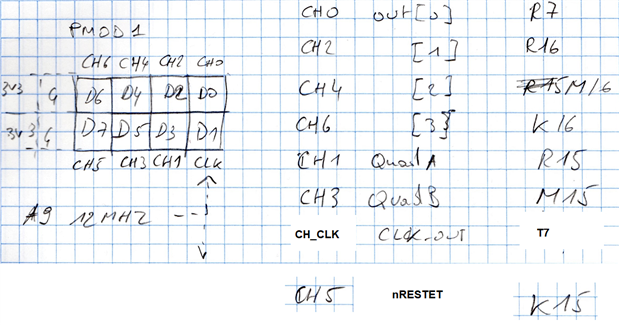 PMOD1
CH6 CH4 CH2 CH0
3V3 G D6 D4 D2 D0
3V3 G D7 D5 D3 D1
CH5 CH3 CH1 CLK
A9 12MHZ
CH0 out[0] R7
CH2 [1] R16
CH4 [2] R15 M16
CH6 [3] K16
CH1 QuadA R15
CH3 QuadB M15
CH_CLK CLK_out T7
CH5 nRESTET K15